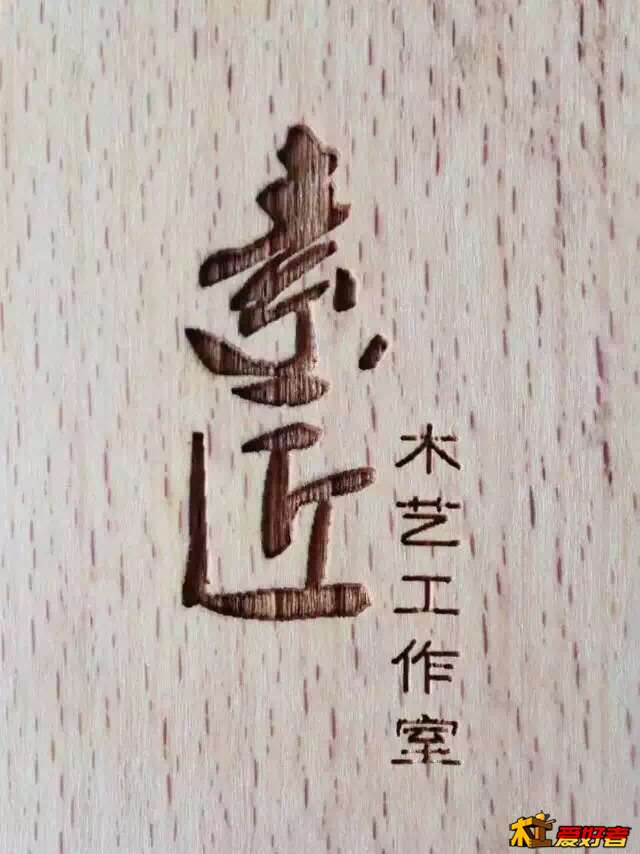 素匠
木艺工作室
木工爱好者